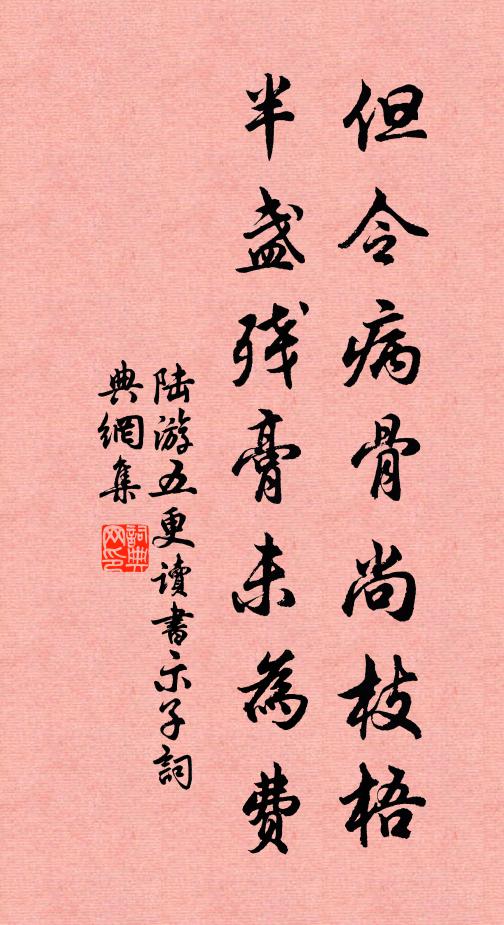 但令病骨尚枝梧
半盏残膏未為费
陆游五更读書示子詞
典網集
詞典
网印